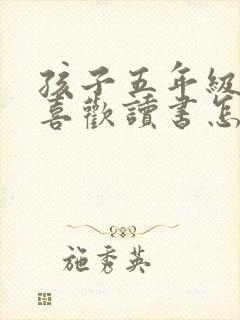 孩子五年級
喜歡讀書怎
施秀英